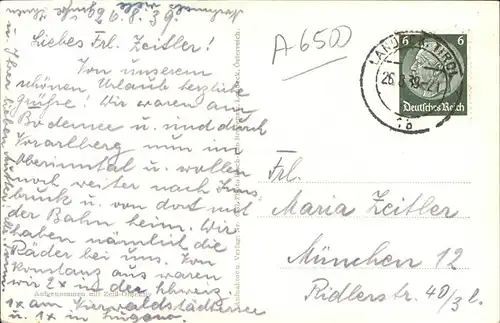 26.8.39.
Liebes Frl. Zeitler!
Von unserem
schönen Urlaub herzliche
Grüße! Wir waren am
Bodensee u. sind durch
Vorarlberg nun im
Oberinntal u. wollen
noch weiter nach Inns
bruck u. von dort mit
der Bahn heim. Wir
haben nämlich die
Räder bei uns. Von
Konstanz aus waren
wir 2x in der Schweiz.
1x am Vierwaldstädtersee
u. 1x in
u. Ihrer lieben Mutter
A 6500
6 6
Deutsches Reich
LANDECK TIROL
26.8.39
Frl.
Maria Zeitler
München 12
Ridlerstr. 40/3 l.